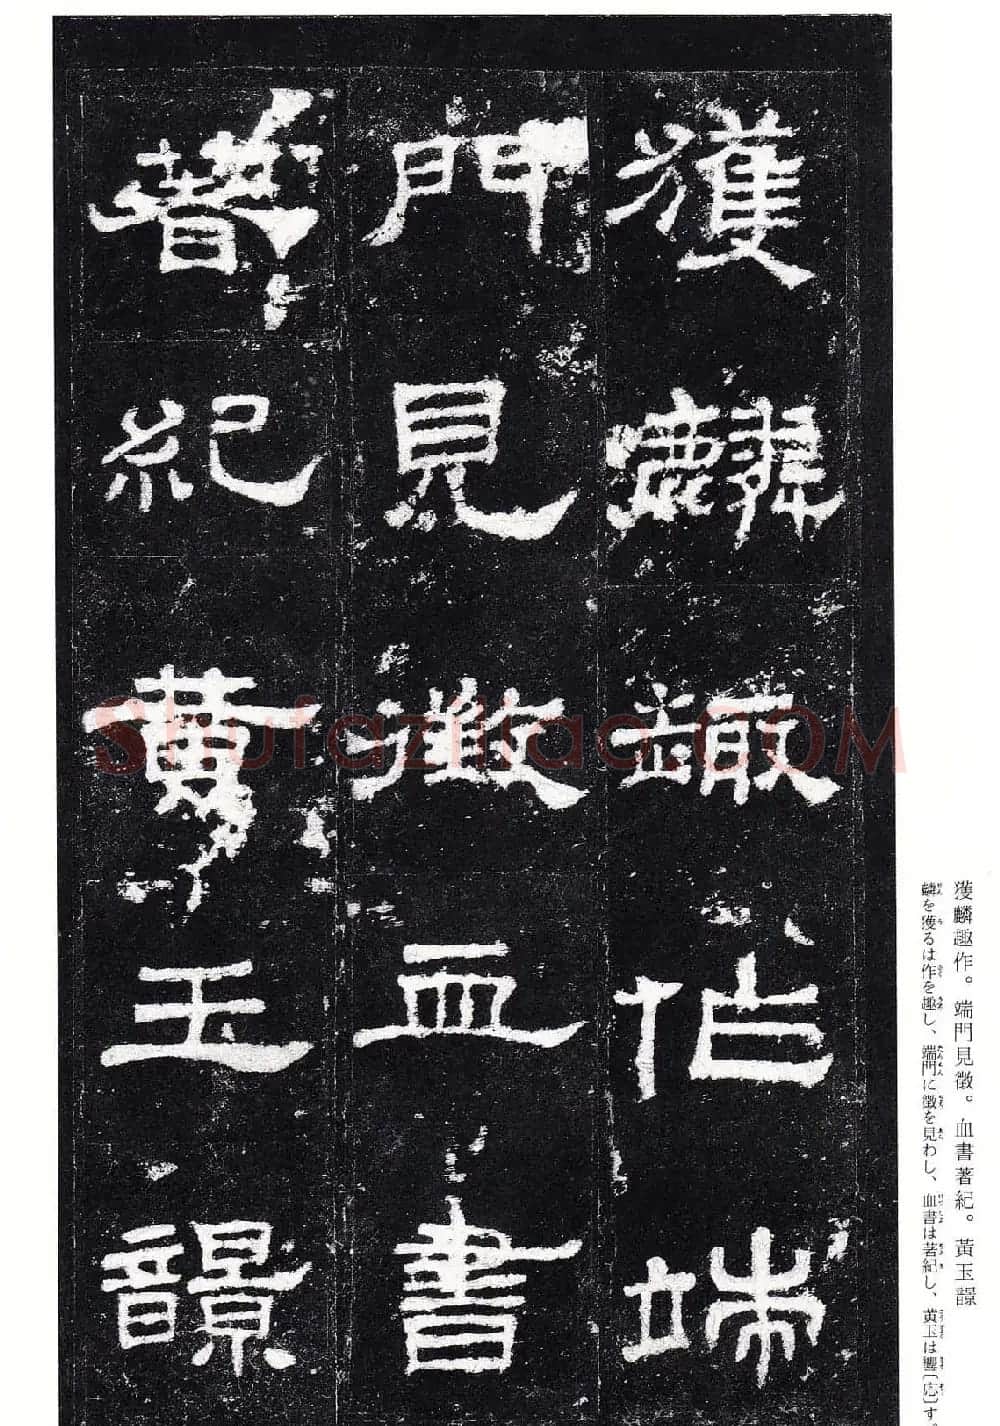 獲麟趣作端
門見徵血書
著紀黃玉䪫
ShufaZiliao.COM
獲麟趣作。端門見徵。血書著紀。黃玉䪫
麟を獲るは作を趣し、端門に徵を見わし、血書は著紀し、黄玉は響〔応〕す。